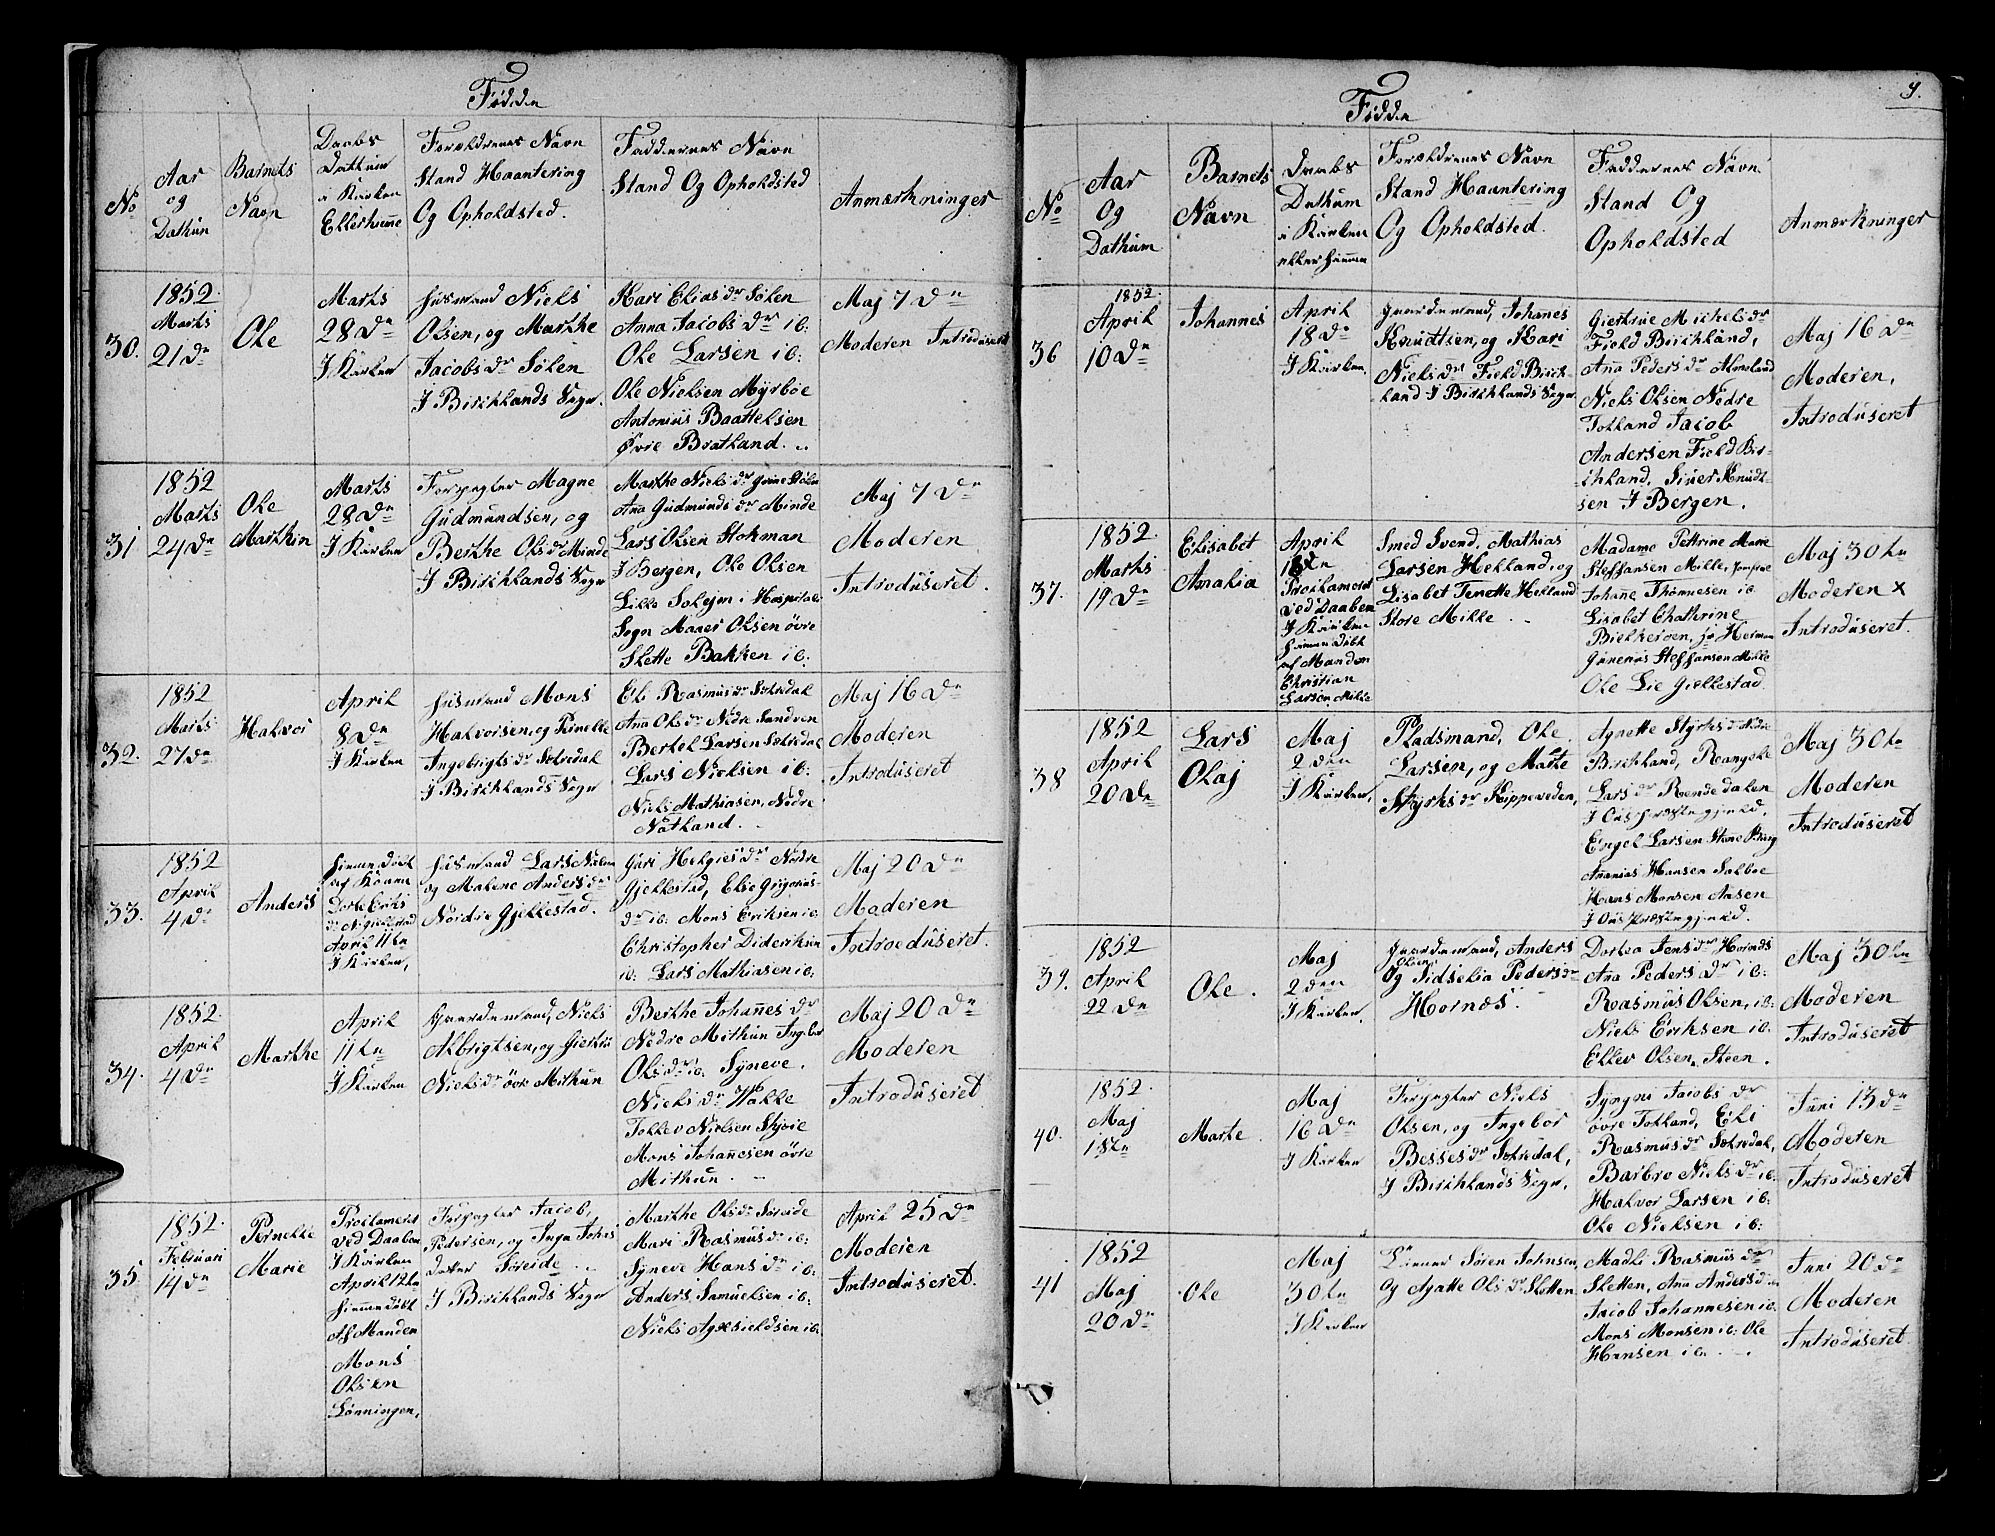 Fødde
No
Aar
og
Dathum
Barnets
Navn
Daabs
Dathum
i Kirken
Ellerhieme
Forældrenes Navn
Stand Haantering
Og Opholdsted.
Faddernes Navn
Stand Og Opholdsted
Anmærkninger
30.
1852.
Marts
21 de
Ole
Marts
28 de
I Kirken
Husmand Niels
Olsen, og Marthe
Jacobs dr Sølen
I Birchlands Sogn.
Kari Elias dr Sølen
Anna Jacobs dr ib:
Ole Larsen ib:
Ole Nielsen Myrboe
Antonius Baattelsen
Øvre Bratland.
Maj 7 de
Moderen Introduseret
31
1852
Marts
24 de
Ole
Marthin
Marts
28 de
I Kirken
Forpagter Magne
Gudmundsen, og
Berthe Ols dr Minde
I Birchlands Sogn
Marthe Niels dr Sølen
Ana Gudmunds dr Minde
Lars Olsen Stokman
I Bergen, Ole Olsen
Lille Solejm i Hospitals
Sogn Maaer Olsen øvre
Slette Bakken ib:
Maj 7 de
Moderen
Introduseret.
32.
1852
Marts
27 de
Halvor
April
8 de
I Kirken
Husmand Mons
Halvorsen, og Pirnelle
Ingebrigts dr Sætredal
I Birchlands Sogn
Eli Rasmus dr Sætredal
Ana Ols dr Nedre Sandven
Bertel Larsen Sætredal
Lars Nielsen ib:
Niels Mathiasen, Nedre
Natland.
Maj 16 de
Moderen
Introduseret
33.
1852
April
4 de
Anders
Hiemme døbt
af Konen
Dorte Eriks
dr N. Gjellestad
April 11 te
I Kirken,
Husmand Lars Nielsen
og Malene Anders dr
Nordre Gjellestad.
Guri Helgies dr Nordre
Gjellestad, Elie Grigorius-
dr ib. Mons Eriksen ib:
Christopher Diderihsen
ib: Lars Mathiasen ib:
Maj 20 de
Moderen
Introduseret.
34.
1852.
April
4 de
Marthe
April
11 te
I Kirken
Gaardemand, Niels
Albrigtsen, og Giertru
Niels dr øvre Mithun
Berthe Johanes dr
Nedre Mithun Ingebor
Ols dr ib: Syneve.
Niels dr Wolle
Tollev Nielsen Skjoie
Mons Johanesen øvre
Mithun.
Maj 20 de
Moderen
Introduseret.
35.
1852.
Februari
14 de
Pirnelle
Marie
Proclameret
ved Daaben
I Kirken
April 12 te
Hiemmedøbt
Af Manden
Mons
Olsen
Lønningen,
Forpagter Jacob,
Pedersen, og Inga Johanes
datter Søreide.
I Birchlands Sogn
Marthe Ols dr Søreide
Mari Rasmus dr ib:
Syneve Hans dr ib:
Anders Samuelsen ib:
Niels Agsesieldsen ib:
April 25 de
Moderen
Introduseret.
Fødde
9.
No
Aar
Og
Dathum
Barnets
Navn
Daabs
Dathum
i Kirken
eller hiemme
Forældrenes Navn
Stand Haantering
Og Opholdsted.
Faddernes Navn
Stand Og
Opholdsted
Anmærkninger
36
1852.
April
10 de
Johannes
April
18 de
I Kirken.
Gaardemand, Johanes
Knudtsen, og Kari
Niels dr Field Birch-
land I Birchlands Sogn
Giertrue Michels dr
Field Birchland,
Ana Peders dr Almeland
Niels Olsen Nedre
Totland Jacob
Andersen Field Bir-
chland, Siver Knudt-
sen I Bergen.
Maj 16 de
Moderen,
Introduseret
37.
1852.
Marts
19 de
Elisabet
Amalia
April
18 de
Proclameret
ved Daaben
I Kirken
hiemmedøbt
af Manden
Christian
Larsen Milde
Smed Svend. Mathias
Larsen Helland, og
Lisabet Tenette Helland
Store Milde.
Madame Pettrine Marie
Steffansen Milde, Jomfrue
Johane Thommesen ib.
Lisabet Chathrine
Bielkeroen, jr Herman
Gunerius Steffansen Milde
Ole Lie Gjellestad.
Maj 30 te
Moderen x
Introduseret.
38
1852
April
20 de
Lars
Olaj
Maj
2 den
I Kirken,
Pladsmand, Ole.
Larsen, og Marte
Styrks dr Kippeveden,
Agnette Styrks dr Nedre
Birchland, Raangele
Lars dr Rendedalen
I Ous Præstegjeld.
Engel Larsen Store Ring
Ananias Hansen Salboe
Hans Monsen Aasen
I Ous Præstegjeld.
Maj 30 te
Moderen
Introduseret
39.
1852
April
22 de
Ole.
Maj
2 den
I Kirken,
Gaardemand, Anders
Olsen
Og Sidselia Peders dr
Hornæs.
Dortea Jens dr Hornæs
Ana Peders dr ib:
Rasmus Olsen, ib:
Niels Eriksen ib:
Ellev Olsen. Steen.
Maj 30 te
Moderen
Introduseret
40.
1852.
Maj
1 ste
Marte.
Maj
16 de
I Kirken
Forpagter Niels
Olsen, og Ingebor
Besses dr Sætredal,
I Birchlands Sogn,
Syngni Jacobs dr
øvre Totland, Eli
Rasmus dr Sætredal,
Barbro Niels dr ib:
Halvor Larsen ib:
Ole Nielsen ib:
Juni 13 de
Moderen
Introduseret
41
1852
Maj
20 de
Ole
Maj
30 te
I Kirken
Søren Johnsen,
Og Agatte Ols dr Sletten
Madli Rasmus dr
Sletten, Ana Anders dr
Jacob Johannesen ib.
Mons Monsen ib: Ole
Hansen ib.
Juni 20 de
Moderen
Introduseret.